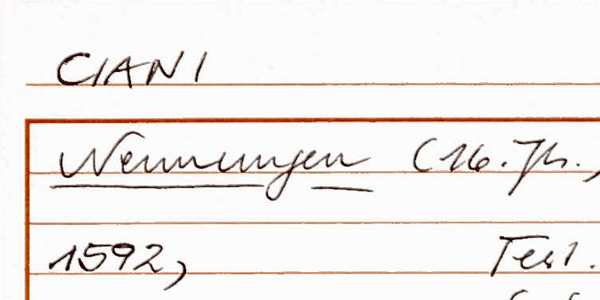 CIANI
Nennungen (16. Jh.,
1592, Test.